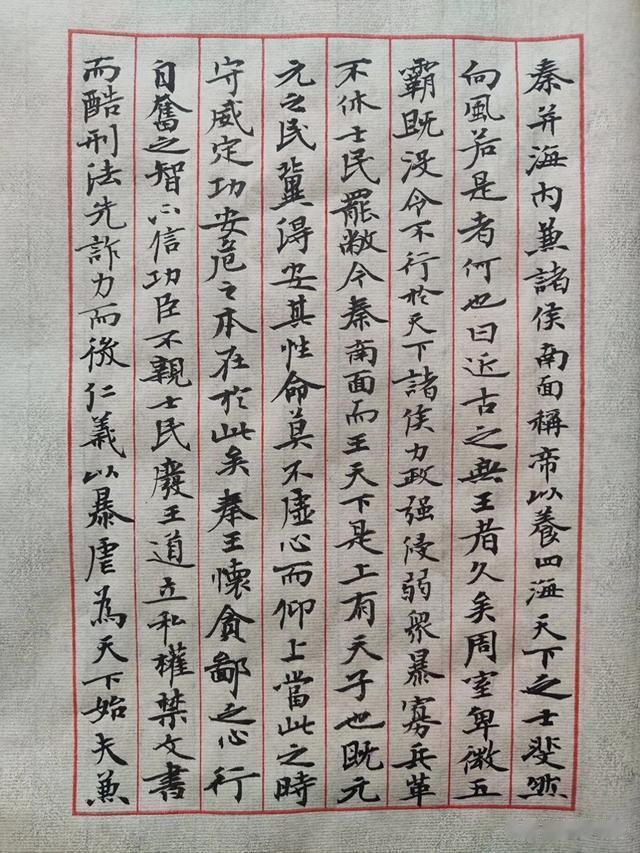 秦并海内兼諸侯南面稱帝以養四海天下之士斐然
向風若是者何也曰近古之無王者久矣周室卑微五
霸既没令不行於天下諸侯力政强侵弱衆暴寡兵革
不休士民罷敝今秦南面而王天下是上有天子也既元
元之民冀得安其性命莫不虚心而仰上當此之時
守威定功安危之本在於此矣秦王懷貪鄙之心行
自奮之智不信功臣不親士民廢王道立私權禁文書
而酷刑法先詐力而後仁義以暴虐為天下始夫兼